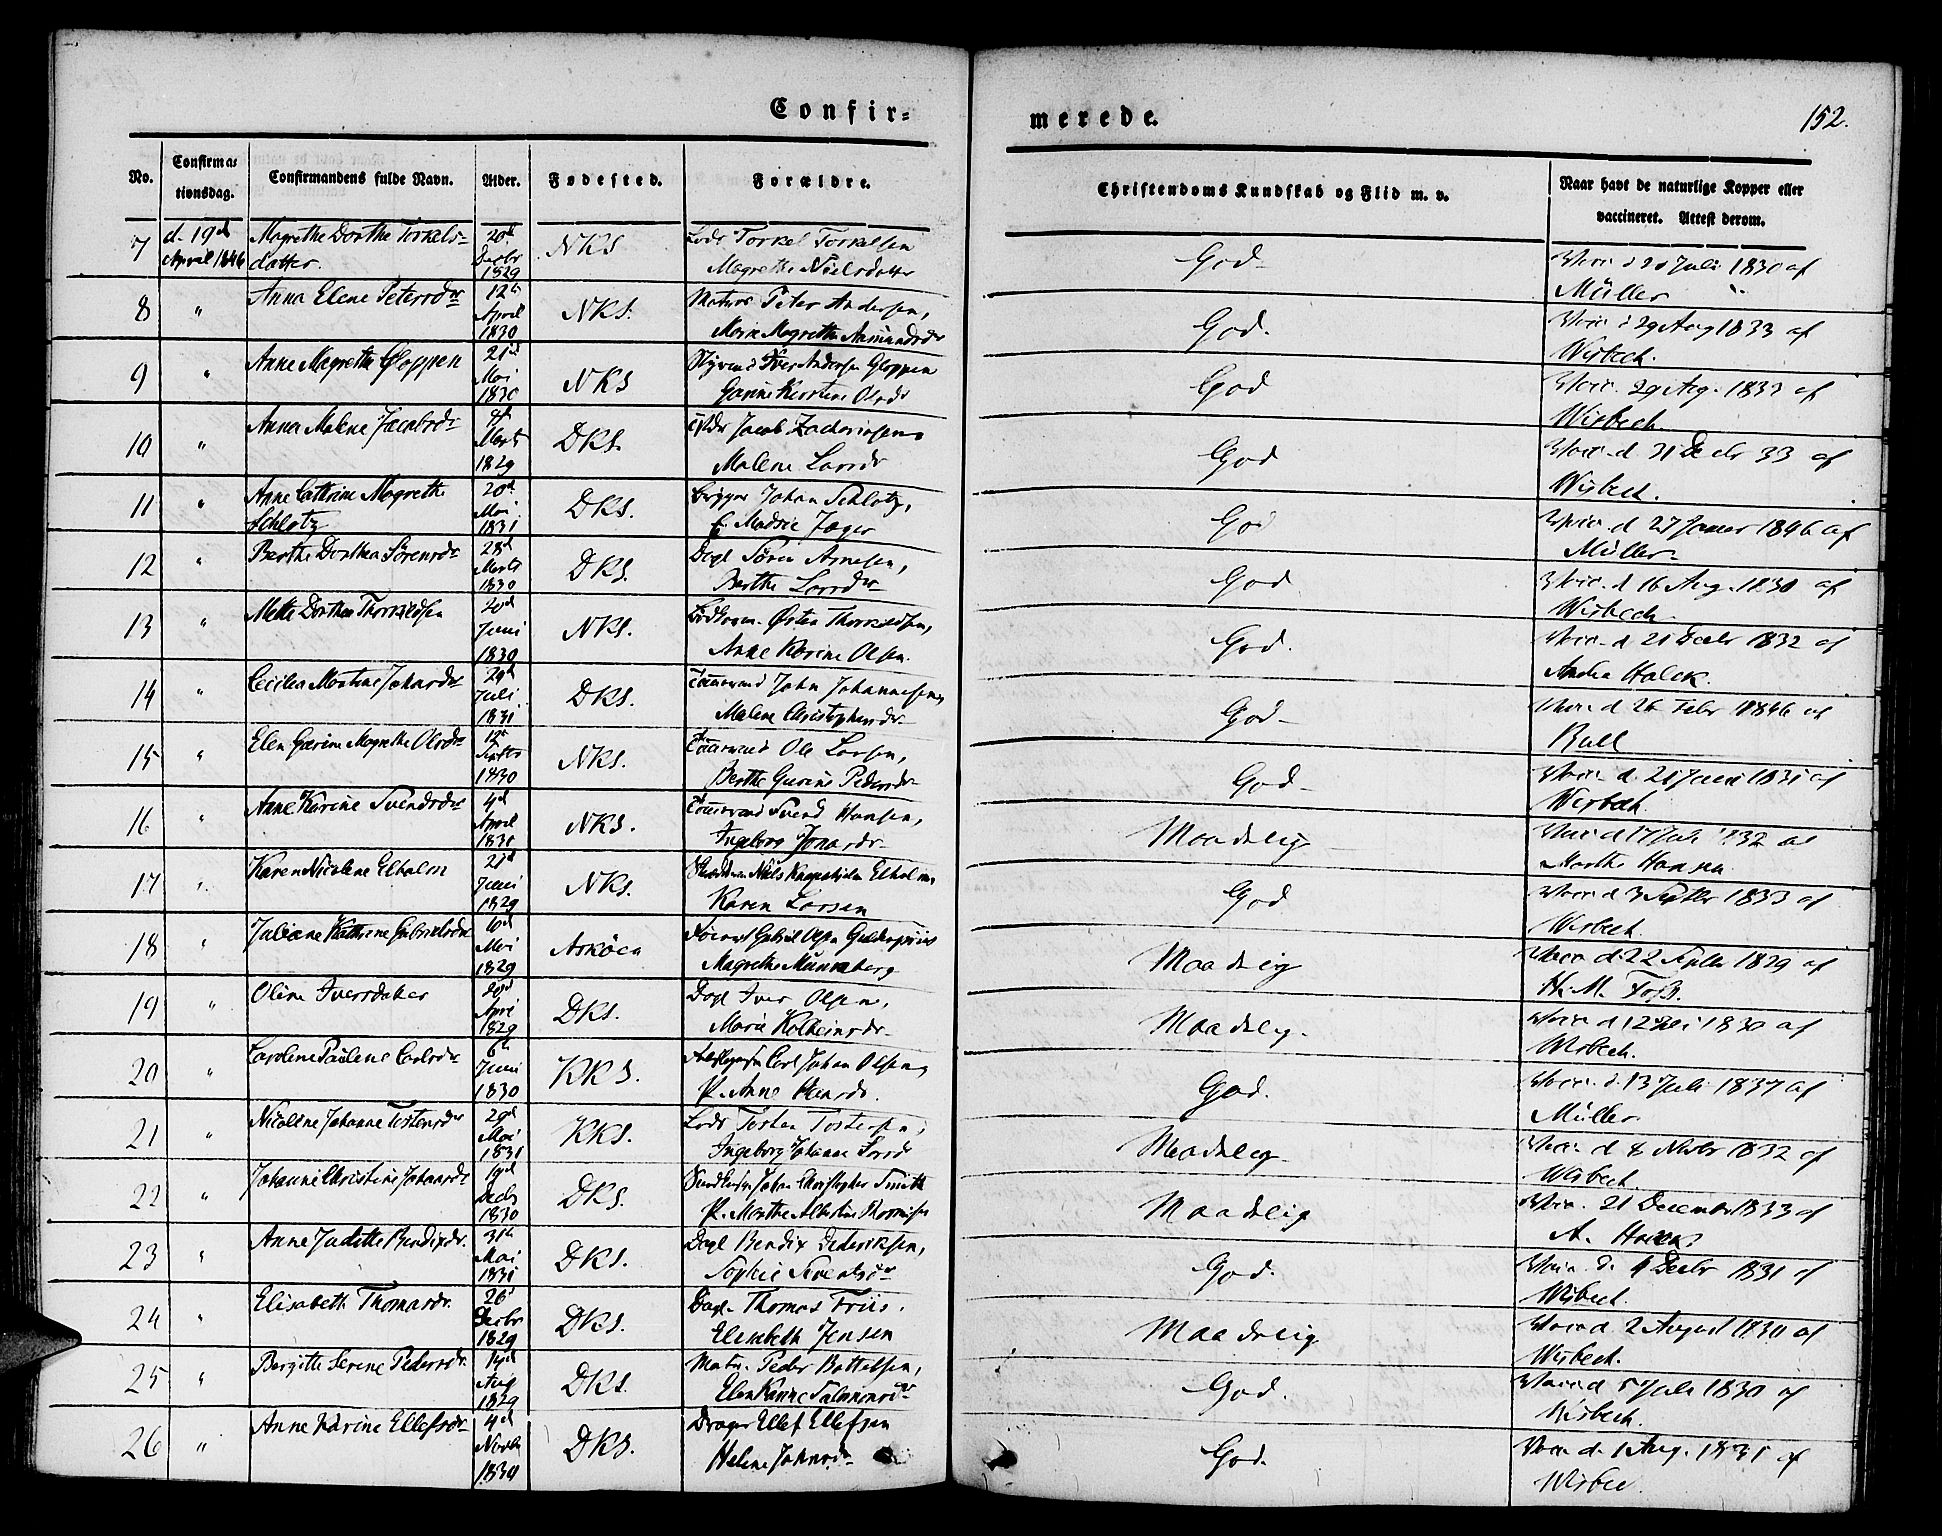 Confir=
merede.
152.
No.
Confirma=
tionsdag.
Confirmandens fulde Navn.
Alder.
Fødested.
Forældre.
Christendoms Kundskab og Flid m. v.
Naar havt de naturlige Kopper eller
vaccineret. Attest derom.
7 d. 19d April 1846 Magrethe Dorthe Torkels=
datter. 20d Decbr 1829 NKS. Lods Torkel Torkelsen
Magrethe Nielsdatter God Juli 1830 af
Müller
8 " Anna Elene Petersdr 12te April 1830 NKS. Matros Peter Andersen,
Maren Magrethe Amundsdr God. 29 Aug 1833 af
Wisbech.
9 " Anne Magrethe Gloppen 21d Mai 1830 NKS Styrmd Iver Andersen Gloppen
Gurine Kirstine Olsdr God 29 Aug. 1833 af
Wisbech
10 " Anna Malene Jacobsdr Marts 1829 DKS. Jacob Zachariasen
Malene Larsdr God d 31 Decbr 33 af
Wisbech.
11 " Anne Cathrine Magrethe
Schlotz 20d Mai 1831 DKS. Johan Schlotz,
Jæger God d 27 Januar 1846 af
Müller
12 " Berthe Dorthea Sørensdr 28d Marts 1830 DKS. Dagl Søren Arnesen,
Berthe Larsdr God d 16 Aug. 1830 af
Wisbech
13 " Mette Dorthea Thorkildsen 20d Juni 1830 NKS. Østen Thorkildsen,
Anne Karine Olsen. God. d 21 Decbr 1832 af
Andrea Holck.
14 " Cecilia Martine Johansdr 29d Juli 1831 DKS. Tømmermd John Johannesen,
Malene Christophersdr God d 26 Febr 1846 af
Bull
15 " Elen Gurine Magrethe Olsdr 12te Septbr 1830 NKS. Tømmermd Ole Larsen,
Berthe Gurine Pedersdr God d. 21 1831 af
Wisbech
16 " Anne Karine Svendsdr 4d April 1830 NKS. Tømmermd Svend Hansen,
Ingeborg Jonasdr. Maadelig d 17 Juli 1832 af
Marthe Hansen
17 " Karen Nicolene Elholm 21d Juni 1829 NKS. Niels Elholm
Karen Larsen God d 3 Septbr 1833 af
Wisbech.
18 " Juliane Kathrine Gabrielsdr 6d Mai 1829 Askøen Gabriel Olsen
Magrethe Maadelig d. 22 Septbr 1829 af
H. M. Foss.
19 " Oline Iversdatter 20d April 1829 DKS. Dagl Iver Olsen,
Marie Maadelig. d 12 1830 af
Wisbech.
20 " Caroline Pauline Carlsdr 6te Juni 1830 KKS. Carl Johan Olsen,
P. Anne God. d. 13 Juli 1837 af
Müller
21 " Nicoline Johanne Tostensdr 29d Mai 1831 KKS. Lods Tosten Tostensen,
Ingeborg Johanne Maadelig d 8 Novbr 1832 af
Wisbech.
22 " Johanne Christine Johansdr 19d Decbr 1830 DKS. Johan Christopher Smith
P. Marthe Albertine Maadelig 21 December 1833 af
A.
23 " Anne Judithe Bendixdr. 31te Mai 1831 DKS. Dagl Bendix Dideriksen,
Sophie God. d. 9 Decbr 1831 af
Wisbech.
24 " Elisabeth Thomasdr. 26d Decbr 1829 DKS. Dagl. Thomas Friis.
Elisabeth Jensen Maadelig d. 2 August 1830 af
Wisbech.
25 " Bergitte Serine Pedersdr. 14d Aug 1829 DKS. Matr. Peder Bottelsen,
Elen Karine Salamonsdr God. d 5 Juli 1830 af
Wisbech.
26 " Anne Karine Ellefsdr 4d Novbr 1830 DKS. Drager Ellef Ellefsen
Helene Johnsdr God. d. 1 Aug. 1831 af
Wisbec